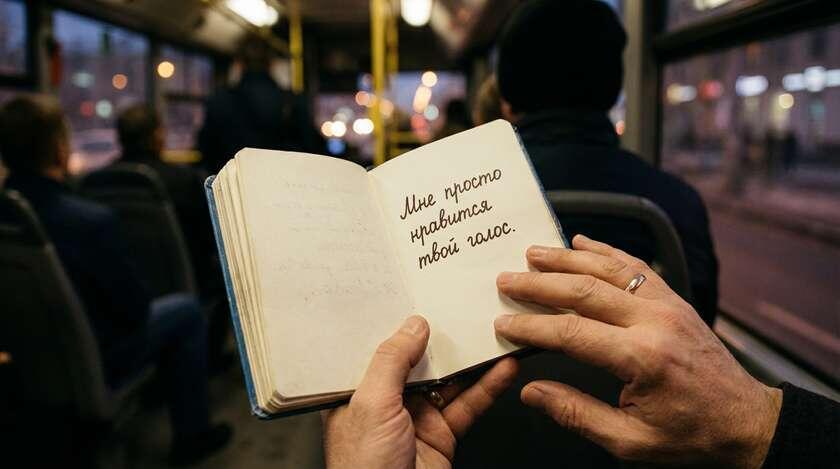 Мне просто
нравится
твой голос.